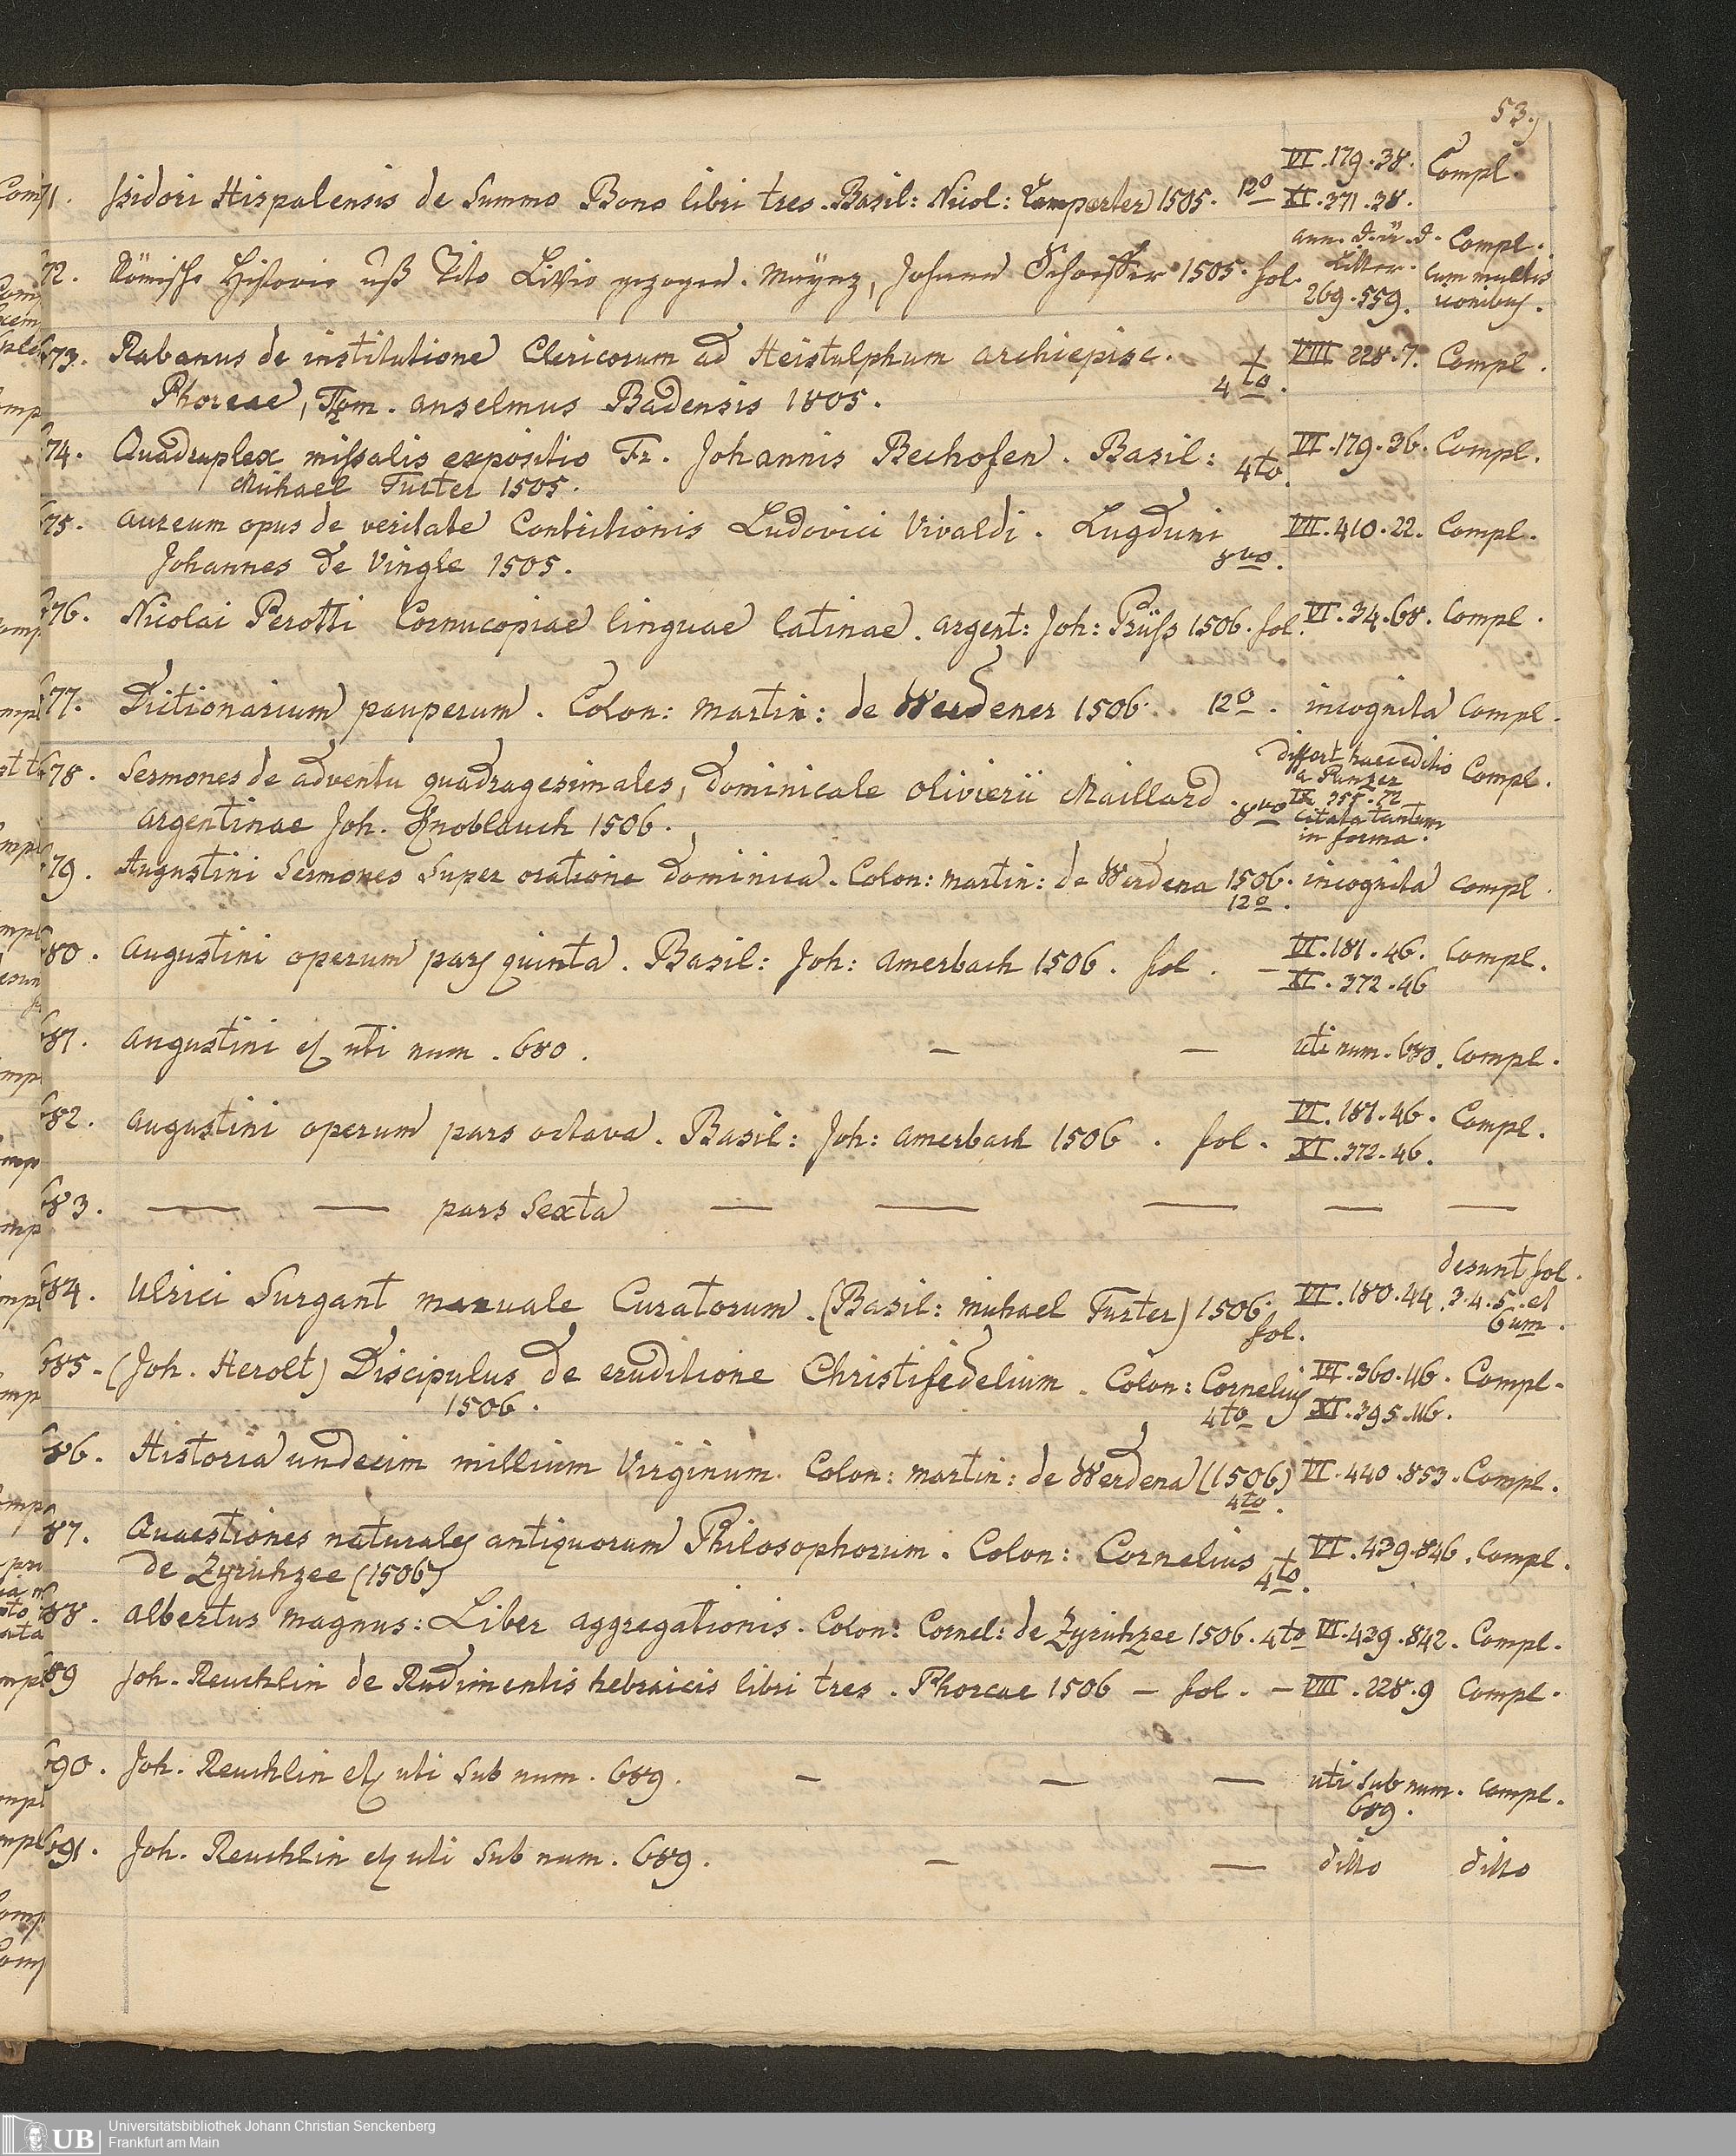 53.
71. Isidori Hispalensis de Summo Bono libri tres. Basil: Nicol: Lamparter 1505. 12o VI.179.38. XI.371.38. Compl.
72. Römische Historie uß Tito Livio gezogen. Maynz, Johann Schoeffer 1505. fol. ann. d. ä. d. Litter. 269.559. Compl. cum multis iconibus.
673. Rabanus de institutione Clericorum ad Heistulphum archiepisc.
Phorcae, Thom. anselmus Badensis 1805. 4to. VIII 228.7. Compl.
674. Quadruplex missalis expositio Fr. Johannis Bechofen. Basil:
Michael Furter 1505. 4to. VI.179.36. Compl.
675. aureum opus de veritate Contritionis Ludovici Vivaldi. Lugduni
Johannes de Vingle 1505. 8vo. VII.410.22. Compl.
676. Nicolai Perotti Cornucopiae linguae latinae. argent: Joh: Prüss 1506. fol. VI.34.68. Compl.
677. Dictionarium pauperum. Colon: martin: de Werdener 1506. 12o. incognita Compl.
678. Sermones de adventu quadragesimales, dominicale olivierii Maillard.
argentinae Joh. Knoblauch 1506. 8vo differt haec editio a Panzer IX 355.72 citata tantum in forma. Compl.
679. Augustini Sermones Super oratione dominica. Colon: martin: de Werdena 1506. 12o. incognita compl.
680. augustini operum pars quinta. Basil: Joh: amerbach 1506. fol. – VI.181.46. XI.372.46 Compl.
681. augustini etc uti num. 680. — — uti num. 680. Compl.
682. augustini operum pars octava. Basil: Joh: amerbach 1506. fol. VI.181.46. XI.372.46. Compl.
683. — — pars Sexta — — — — —
684. Ulrici Surgant manuale Curatorum. (Basil: michael Furter) 1506. fol. VI.180.44. desunt fol. 3.4.5. et 6um.
685. (Joh. Herolt) Discipulus de eruditione Christifidelium. Colon: Cornelius
1506. 4to VI.360.116. XI.395.116. Compl.
686. Historia undecim millium Virginum. Colon: martin: de Werdena (1506) 4to. VI.440.853. Compl.
687. Quaestiones naturales antiquorum Philosophorum. Colon: Cornelius
de Zyrichzee (1506) 4to. VI.439.846. Compl.
688. albertus magnus: Liber aggregationis. Colon: Cornel: de Zyrichzee 1506. 4to VI.439.842. Compl.
689 Joh. Reuchlin de Rudimentis hebraicis libri tres. Phorcae 1506 – fol. – VIII.228.9 Compl.
690. Joh. Reuchlin etc uti Sub num. 689. — — — uti Sub num. 689. Compl.
691. Joh. Reuchlin etc uti Sub num. 689. — — ditto ditto
UB Universitätsbibliothek Johann Christian Senckenberg
Frankfurt am Main